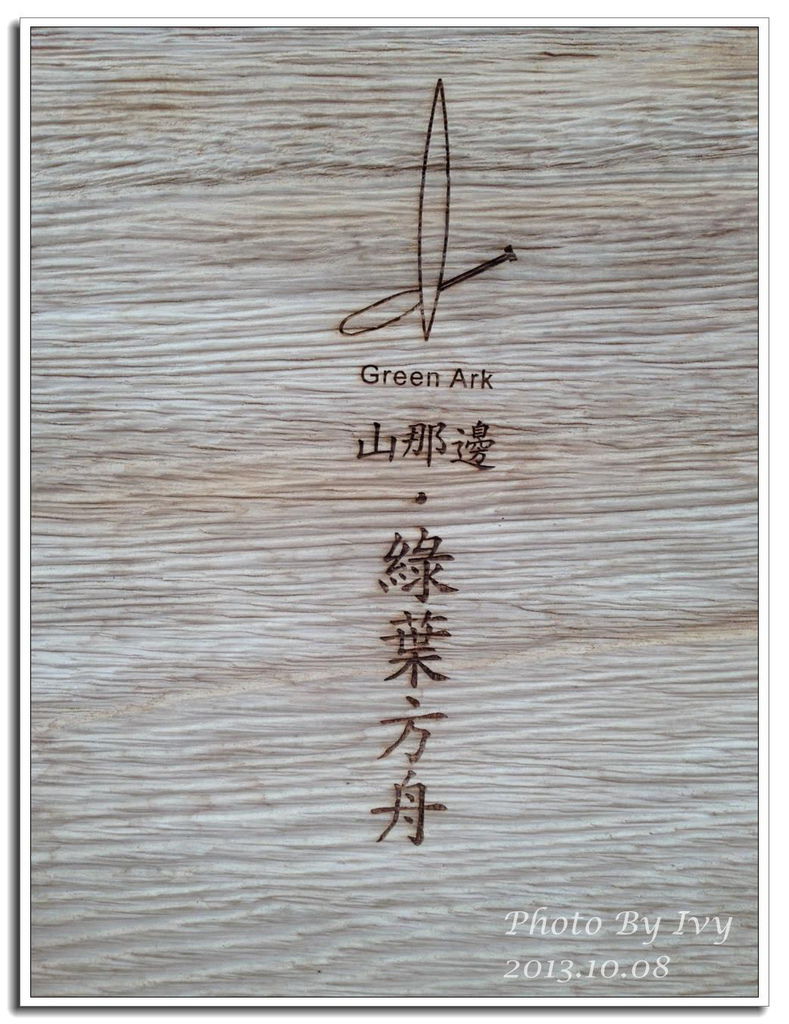 Green Ark
山那邊
·
綠葉方舟
Photo By Ivy
2013.10.08